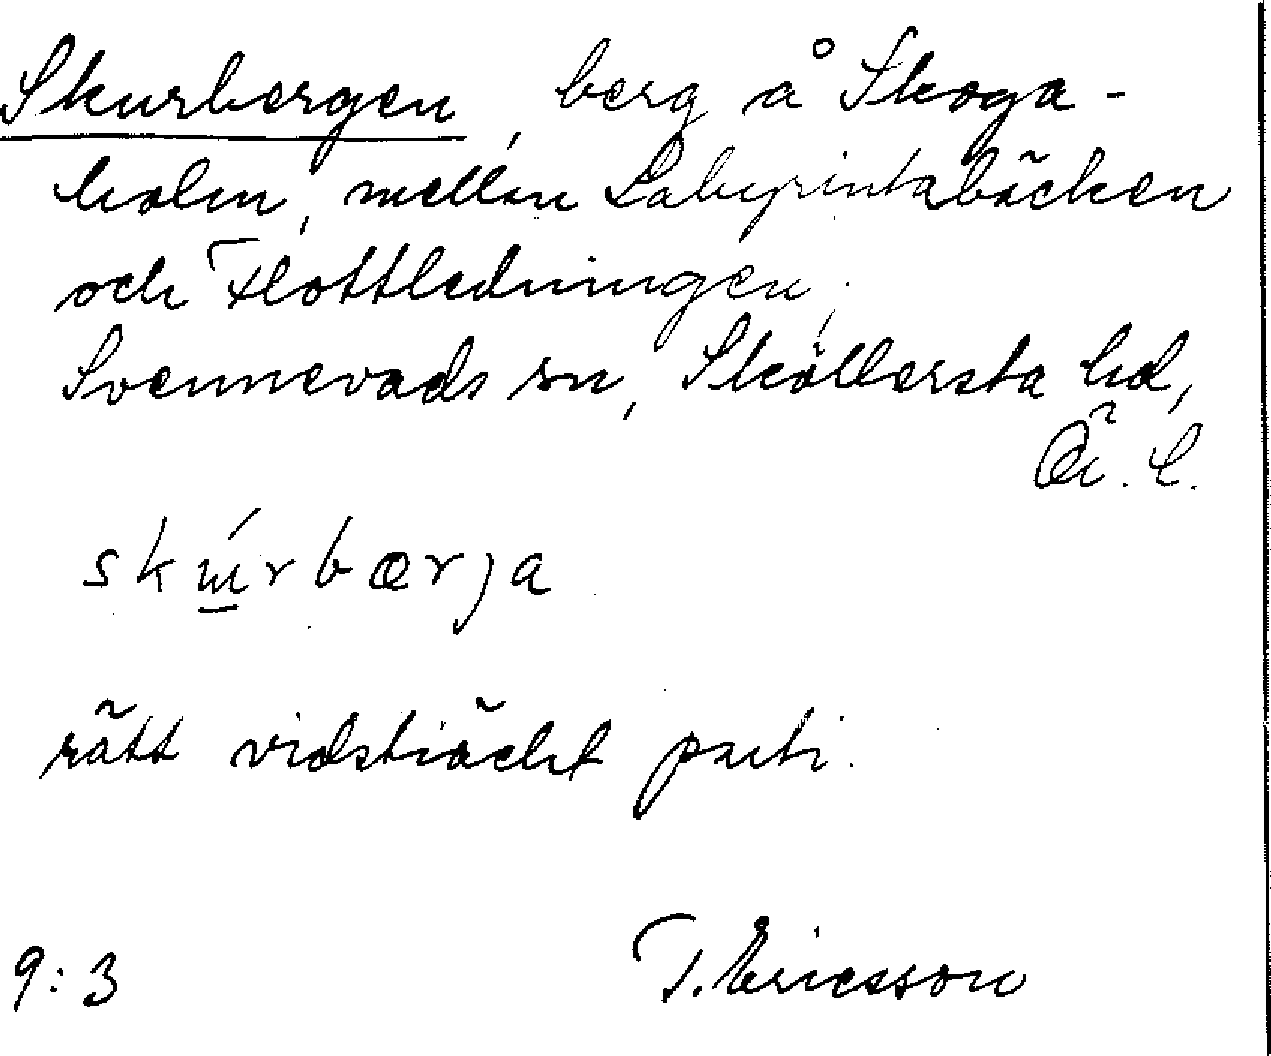 Skurbergen, berg å Skoga-
holm, mellan Labyrintabäcken
och Flottledningen,
Svennevads sn, Sköllersta hd,
Ö. L.
skɯ́rbærja
rätt vidsträckt parti.
9:3 T. Ericsson